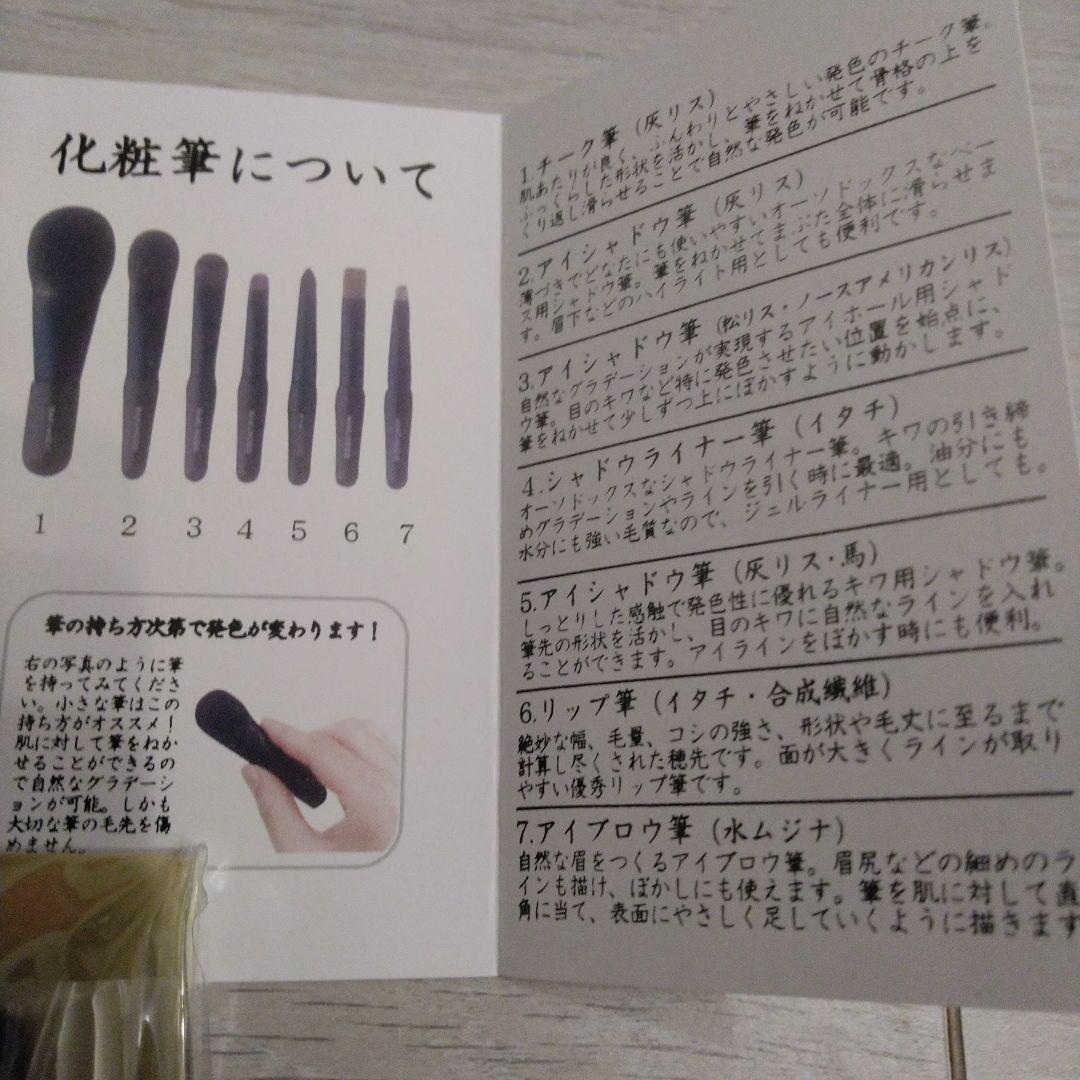 化粧筆について
1
2
3
4
5
6
7
筆の持ち方次第で発色が変わります！
右の写真のように筆
を持ってみてくださ
い。小さな筆はこの
持ち方がオススメ！
肌に対して筆をねか
せることができるの
で自然なグラデーシ
ョンが可能。しかも
大切な筆の毛先を傷
めません。
1.チーク筆（灰リス）
肌あたりが良く、ふんわりとやさしい発色のチーク筆。
ふっくらした形状を活かし、筆をねかせて骨格の上を
くり返し滑らせることで自然な発色が可能です。
2.アイシャドウ筆（灰リス）
薄づきでどなたにも使いやすいオーソドックスなベー
ス用シャドウ筆。筆をねかせてまぶた全体に滑らせま
す。眉下などのハイライト用としても便利です。
3.アイシャドウ筆（松リス・ノースアメリカンリス）
自然なグラデーションが実現するアイホール用シャド
ウ筆。目のキワなど特に発色させたい位置を始点に、
筆をねかせて少しずつ上にぼかすように動かします。
4.シャドウライナー筆（イタチ）
オーソドックスなシャドウライナー筆。キワの引き締
めグラデーションやラインを引く時に最適。油分にも
水分にも強い毛質なので、ジェルライナー用としても。
5.アイシャドウ筆（灰リス・馬）
しっとりした感触で発色性に優れるキワ用シャドウ筆。
筆先の形状を活かし、目のキワに自然なラインを入れ
ることができます。アイラインをぼかす時にも便利。
6.リップ筆（イタチ・合成繊維）
絶妙な幅、毛量、コシの強さ、形状や毛丈に至るまで
計算し尽くされた穂先です。面が大きくラインが取り
やすい優秀リップ筆です。
7.アイブロウ筆（水ムジナ）
自然な眉をつくるアイブロウ筆。眉尻などの細めのラ
インも描け、ぼかしにも使えます。筆を肌に対して直
角に当て、表面にやさしく足していくように描きます